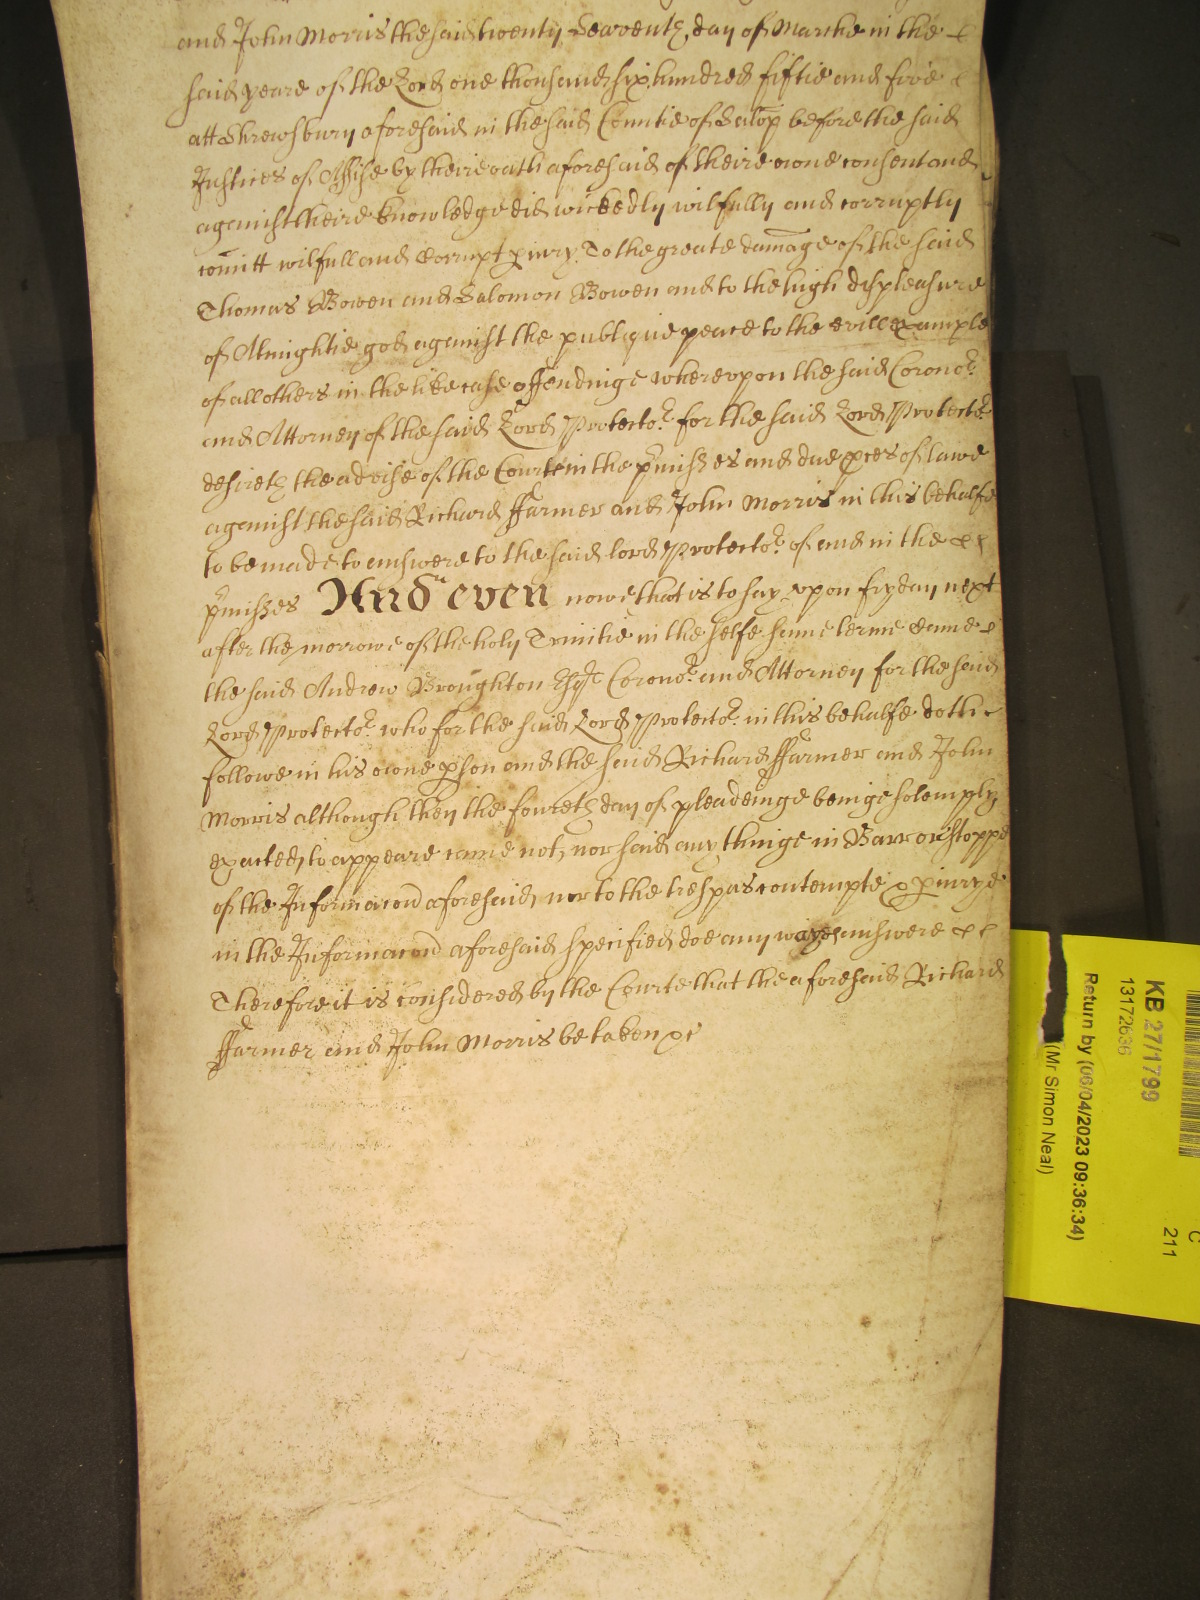 and John Morris the said twenty Seaventh day of Marche in the
said yeare of the Lord one thousand six hundred fiftie and five
att Shrewsbury aforesaid in the said Countie of Salop before the said
Justices of Assise by theire oath aforesaid of theire owne consent and
against theire knowledge did wickedly wilfully and corruptly
comitt wilfull and Corrupt piury To the greate damage of the said
Thomas Bowen and Salomon Bowen and to the high displeasure
of Almightie god against the publique peace to the evill example
of all others in the like case offendinge whereupon the said Corono.r
and Attorney of the said Lord Protecto.r for the said Lord Protecto.r
desireth the advise of the Court in the p.rmisses and due p.ces of lawe
against the said Richard ffarmer and John Morris in this behalfe
to be made to answere to the said lord Protecto.r of and in the
p.rmisses And even nowe that is to say upon fryday next
after the morrowe of the holy Trinitie in the selfe same terme Came
the said Andrew Broughton Esq.r Corono.r and Attorney for the said
Lord Protecto.r who for the said Lord Protecto.r in this behalfe doth
followe in his owne pson and the said Richard ffarmer and John
Morris although they the fourth day of pleadeinge beinge solemply
exacted to appeare came not nor said any thinge in Barr or stoppe
of the Informacon aforesaid nor to the trespas contempte & piurye
in the Informacon aforesaid specified doe any wayes answere
Therefore it is considered by the Courte that the aforesaid Richard
ffarmer and John Morris be taken &c
KB 27/1799
13172636
Return by (06/04/2023 09:36:34)
(Mr Simon Neal)
C
211